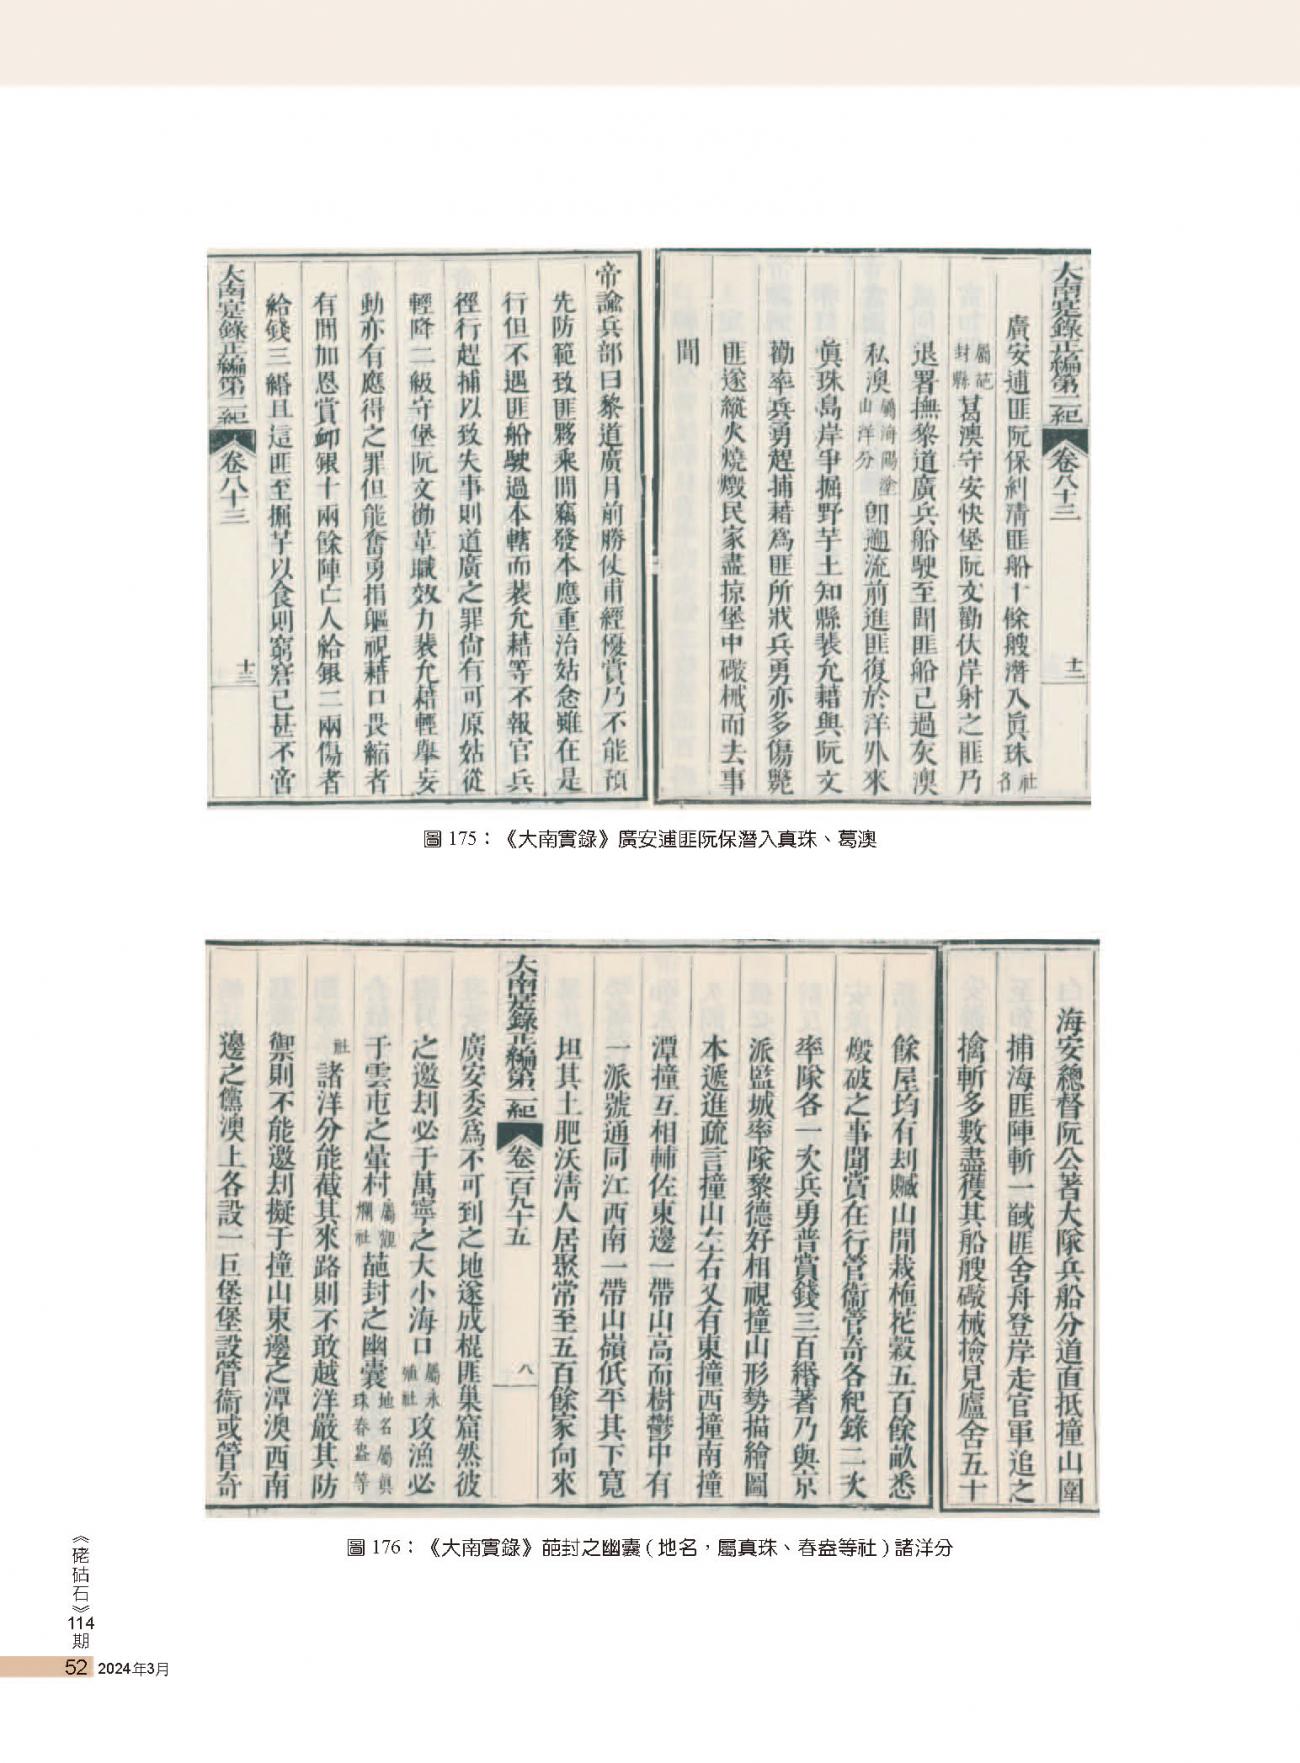 大南寔錄正編第二紀 卷八十三 十二
廣安逋匪阮保糾清匪船十餘艘潛入眞珠社名
屬葩封縣葛澳守安快堡阮文勸伏岸射之匪乃
退署撫黎道廣兵船駛至聞匪船已過灰澳
私澳屬海陽塗山洋分卽遡流前進匪復於洋外來
眞珠島岸爭掘野芋土知縣裴允藉與阮文
勸率兵勇趕捕藉爲匪所戕兵勇亦多傷斃
匪遂縱火燒燬民家盡掠堡中礮械而去事
聞
帝諭兵部曰黎道廣月前勝仗甫經優賞乃不能預
先防範致匪夥乘間竊發本應重治姑念雖在是
行但不遇匪船駛過本轄而裴允藉等不報官兵
徑行趕捕以致失事則道廣之罪尙有可原姑從
輕降二級守堡阮文勸革職效力裴允藉輕舉妄
動亦有應得之罪但能奮勇捐軀視藉口畏縮者
有間加恩賞卹銀十兩餘陣亡人給銀二兩傷者
給錢三緡且這匪至掘芋以食則窮窘已甚不啻
大南寔錄正編第二紀 卷八十三 十三
圖 175：《大南實錄》廣安逋匪阮保潛入真珠、葛澳
海安總督阮公著大隊兵船分道直抵撞山圍
捕海匪陣斬一馘匪舍舟登岸走官軍追之
擒斬多數盡獲其船艘礮械撿見廬舍五十
餘屋均有刦贓山間栽植芲穀五百餘畝悉
燬破之事聞賞在行管衞管奇各紀錄二次
率隊各一次兵勇普賞錢三百緡著乃與京
派監城率隊黎德好相視撞山形勢描繪圖
本遞進疏言撞山左右又有東撞西撞南撞
潭撞互相輔佐東邊一帶山高而樹鬱中有
一派號通同江西南一帶山嶺低平其下寬
坦其土肥沃淸人居聚常至五百餘家向來
大南寔錄正編第二紀 卷一百九十五 八
廣安委爲不可到之地遂成棍匪巢窟然彼
之邀刦必于萬寧之大小海口屬永殖社攻漁必
于雲屯之暈村屬觀爛社葩封之幽囊地名屬眞珠春盎等
社諸洋分能截其來路則不敢越洋嚴其防
禦則不能邀刦擬于撞山東邊之潭澳西南
邊之儻澳上各設一巨堡堡設管衞或管奇
圖 176：《大南實錄》葩封之幽囊（地名，屬真珠、春盎等社）諸洋分
《硓𥑮石》114期
52 2024年3月